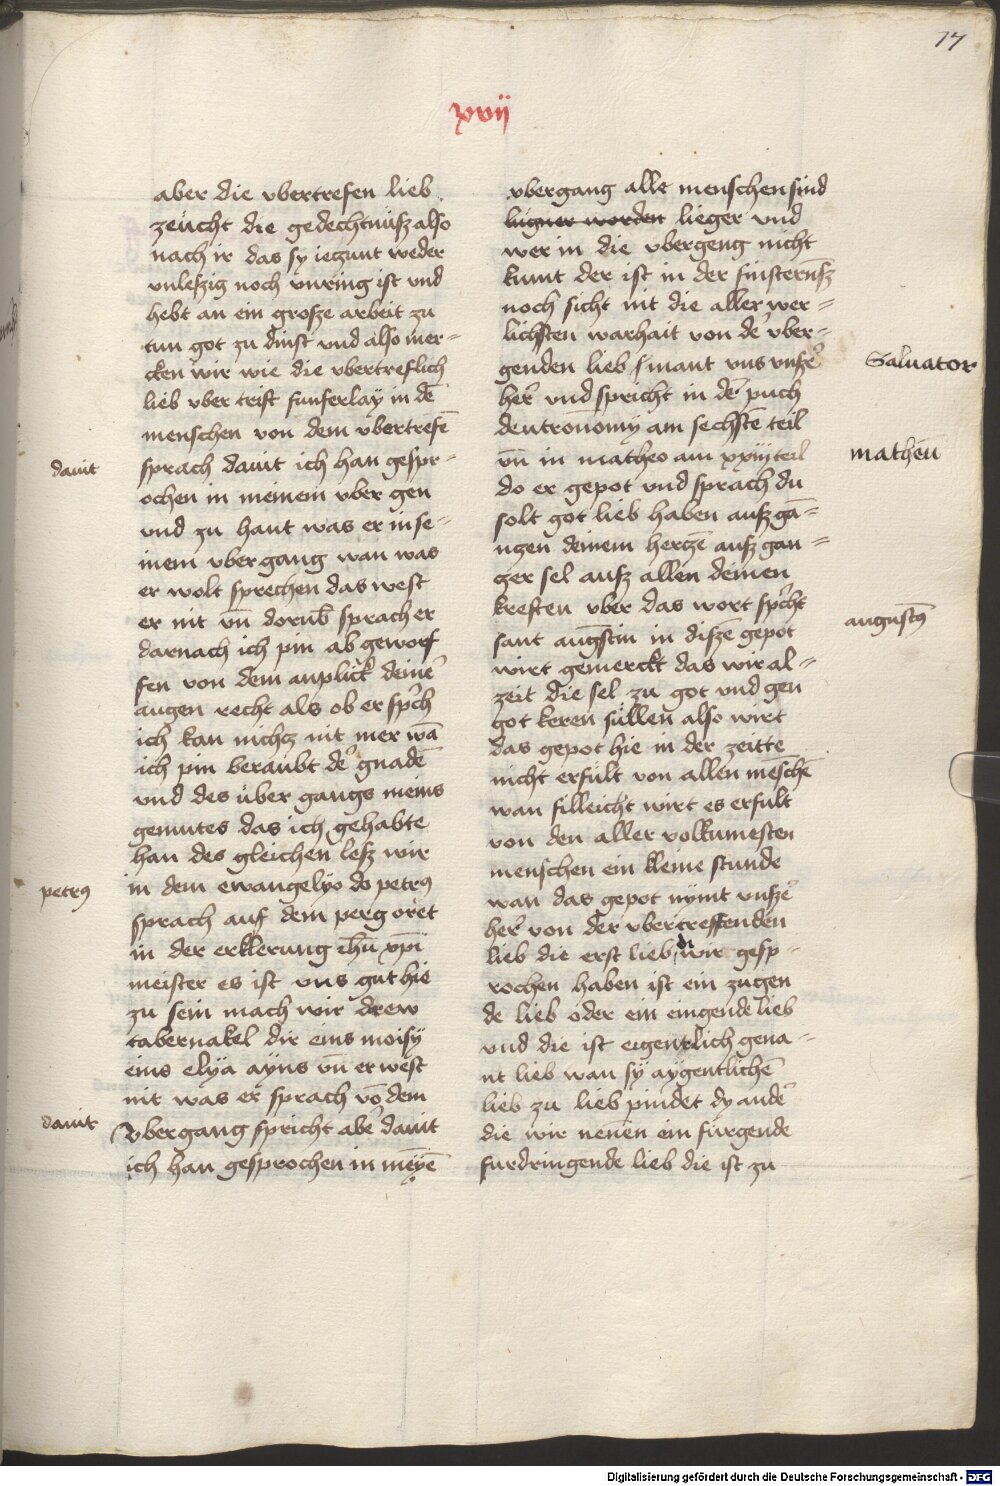 17
xvij
aber die vbertrefen lieb
zeucht die gedechtnusz also
nach ir das sy ieczunt weder
vnleszig noch vnring ist vnd
hebt an ein grosze arbeit zu
tun got zu dinst vnd also mer=
cken wir wie die vbertreflich
lieb vber trift funferlaÿ in dē
menschen von dem vbertrefē
dauit
sprach dauit ich han gespr=
ochen in meinem vber gen
vnd zu hant was er in se=
inem vbergang wan was
er wolt sprechen das west
er nit vn̄ dorub̄ sprach er
darnach ich pin ab geworf
fen von dem anplick deine᷑
augen recht als ob er sp᷑ch
ich kan nichcz nit mer wā
ich pin beraubt de᷑ gnadē
vnd des über gangs meins
gemutes das ich gehabte
han des gleichen lesz wir
petrꝰ
in dem ewangelyo do petrꝰ
sprach auf dem perg oret
in der erklerung ihū xp̄i
meister es ist vns gut hie
zu sein mach wir drew
tabernakel dir eins moisÿ
eins elÿa aÿns vn̄ er west
nit was er sprach vō dem
dauit
vbergang spricht abe᷑ dauit
ich han gesprochen in mēyē
vbergang alle menschen sind
lugner worden lieger vnd
wer in die vbergeng nicht
kumt der ist in der finsternüsz
noch sicht nit die aller wer=
lichsten warhait von de᷑ vber=
genden lieb / mant vns vnsze᷑
Saluator
her᷑ vnd spricht in de᷑ puch
deutronomy am sechstē teil
matheū
vn̄ in matheo am xxiij teil
do er gepot vnd sprach du
solt got lieb haben ausz gā=
nczen deinem herczē ausz gan=
ger sel ausz allen deinen
kreften vber das wort sp᷑cht
augustꝰ
sant augstin in diszē gepot
wirt gemerckt das wir al=
zeit die sel zu got vnd gen
got keren süllen also wirt
das gepot hie in der zeitte
nicht erfült von allen mēschē
wan filleicht wirt es erfult
von den aller volkumesten
menschen ein kleine stunde
wan das gepot nÿmt vnsze᷑
her᷑ von der vbertreffenden
lieb die erst lieb di wir gesp=
rochen haben ist ein zugen
de lieb oder ein eingende lieb
vnd die ist eigentlich gena=
nt lieb wan sÿ aÿgentlichē
lieb zu lieb pindet dy ande᷑
die wir nenen ein fürgende
furdringende lieb die ist zu
Digitalisierung gefördert durch die Deutsche Forschungsgemeinschaft - DFG